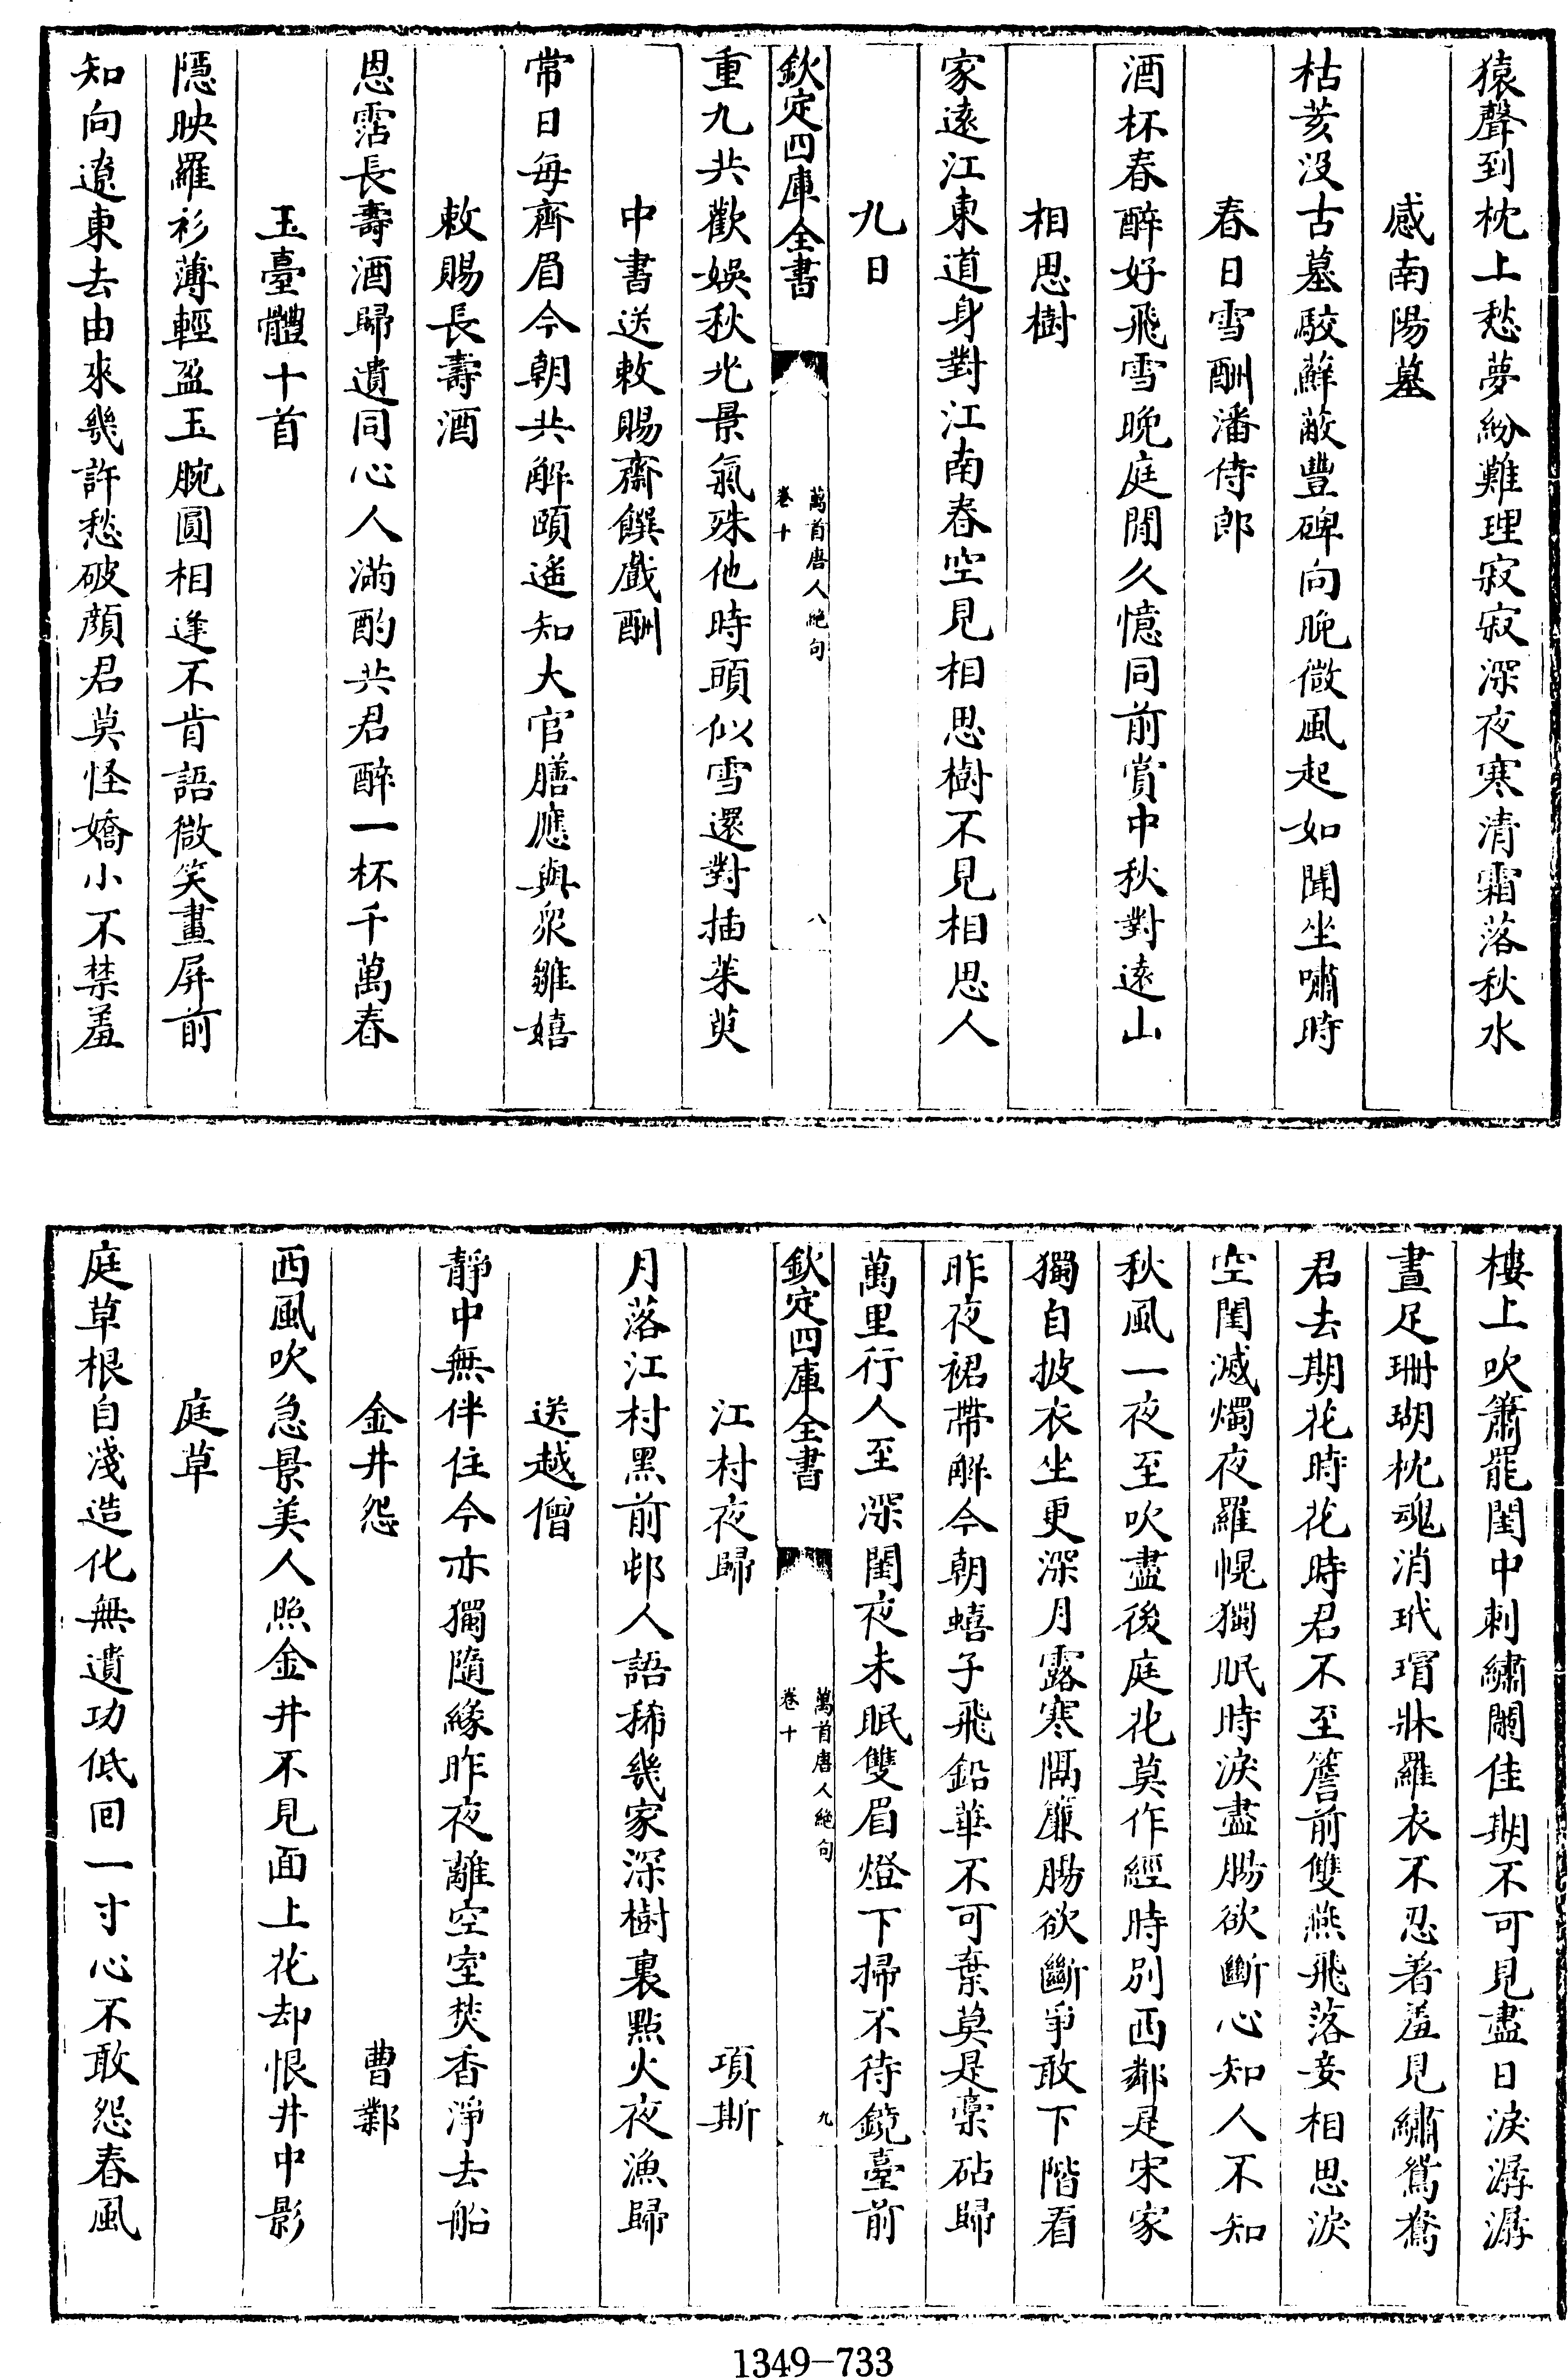 猿聲到枕上愁夢紛難理寂寂深夜寒清霜落秋水
感南陽墓
枯荄没古墓駮蘚蔽豐碑向晚微風起如聞坐嘯時
春日雪酬潘侍郎
酒杯春醉好飛雪晚庭閒久憶同前賞中秋對遠山
相思樹
家遠江東道身對江南春空見相思樹不見相思人
九日
欽定四庫全書
萬首唐人絶句
卷十
八
重九共歡娛秋光景氣殊他時頭似雪還對插茱萸
中書送敕賜齋饌戲酬
常日每齊眉今朝共解頤遥知大官膳應與衆雛嬉
敕賜長壽酒
恩霑長壽酒歸遺同心人滿酌共君醉一杯千萬春
玉臺體十首
隱映羅衫薄輕盈玉腕圓相逢不肯語微笑畫屏前
知向遼東去由來幾許愁破顔君莫怪嬌小不禁羞
樓上吹簫罷閨中刺繡闌佳期不可見盡日淚潺潺
晝足珊瑚枕魂消玳瑁牀羅衣不忍著羞見繡鴛鴦
君去期花時花時君不至簷前雙燕飛落妾相思淚
空閨滅燭夜羅幌獨眠時淚盡腸欲斷心知人不知
秋風一夜至吹盡後庭花莫作經時別西鄰是宋家
獨自披衣坐更深月露寒隔簾腸欲斷爭敢下階看
昨夜裙帶解今朝蟢子飛鉛華不可棄莫是藁砧歸
萬里行人至深閨夜未眠雙眉燈下掃不待鏡臺前
欽定四庫全書
萬首唐人絶句
卷十
九
江村夜歸 項斯
月落江村黑前邨人語稀幾家深樹裏點火夜漁歸
送越僧
靜中無伴住今亦獨隨緣昨夜離空室焚香淨去船
金井怨 曹鄴
西風吹急景美人照金井不見面上花却恨井中影
庭草
庭草根自淺造化無遺功低回一寸心不敢怨春風
1349-733